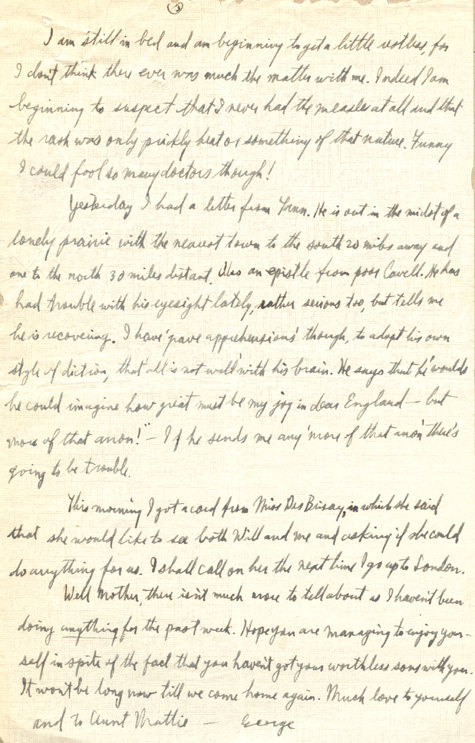 3
I am still in bed and am beginning to get a little restless for
I don't think there ever was much the matter with me. Indeed I am
beginning to suspect that I never had the measles at all and that
the rash was only prickly heat or something of that nature. Funny
I could fool so many doctors though!
Yesterday I had a letter from . He is out in the midst of a
lonely prairie with the nearest town to the south 20 miles away and
one to the north 30 miles distant. Also an epistle from poor Cavell. He has
had trouble with his eyesight lately, rather serious too, but tells me
he is recovering. I have 'grave apprehensions' though, to adopt his own
style of diction, that 'all is not well' with his brain. He says that he 'would
he could imagine how great must be my joy in dear England – but
more of that anon!" – If he sends me any 'more of that anon' there's
going to be trouble.
This morning I got a card from Miss Des Brisay, in which she said
that she would like to see both Will and me and asking if she could
do anything for us. I shall call on her the next time I go up to London.
Well Mother, there isn't much more to tell about as I haven't been
doing anything for the past week. Hope you are managing to enjoy your-
self in spite of the fact that you haven't got your worthless sons with you.
It won't be long now till we come home again. Much love to yourself
and to Aunt Mattie — George